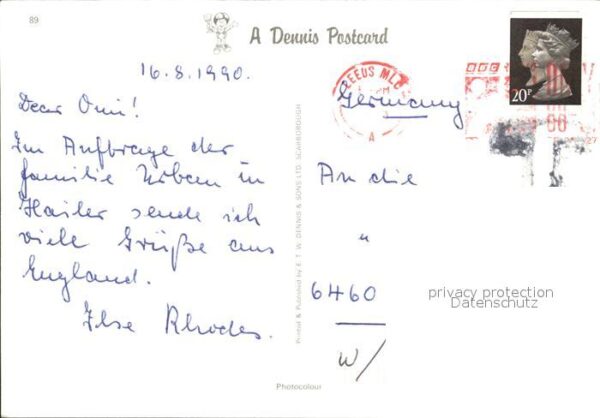 89
A Dennis Postcard
16.8.1990.
Dear Omi!
Im Auftrage der
familie Urban in
Hailer sende ich
viele Grüße aus
England.
Ilse Rhodes.
Printed & Published by E. T. W. DENNIS & SONS LTD. SCARBOROUGH
Photocolour
LEEDS MLO
PM
A
20P
27
Germany
An die
"
6460
W/
privacy protection
Datenschutz